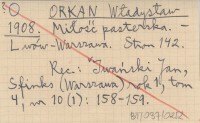 ORKAN Władysław
1908. Miłość pasterska. –
Lwów-Warszawa. Stron 142.
Rec.: Iwański Jan,
Sfinks (Warszawa) rok 1, tom
4, nr 10 (1): 158-159.